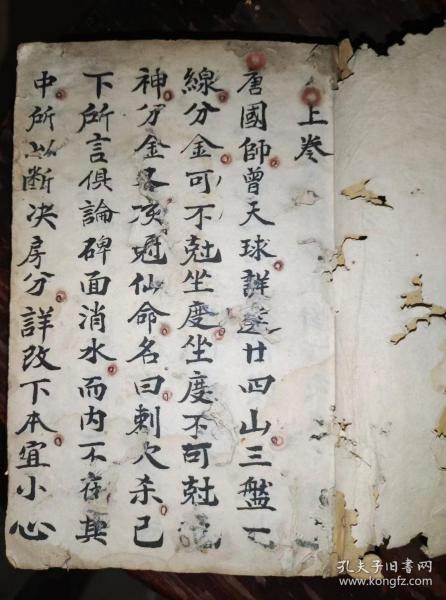 上卷
唐國師曾天球詳選廿四山三盤
線分金可不尅坐度坐度不可尅
神分金各
仙命名曰刺穴杀已
下所言俱論碑面消水而内不
中所以断决房分詳改下本宜小心
孔夫子旧书网
www.kongfz.com